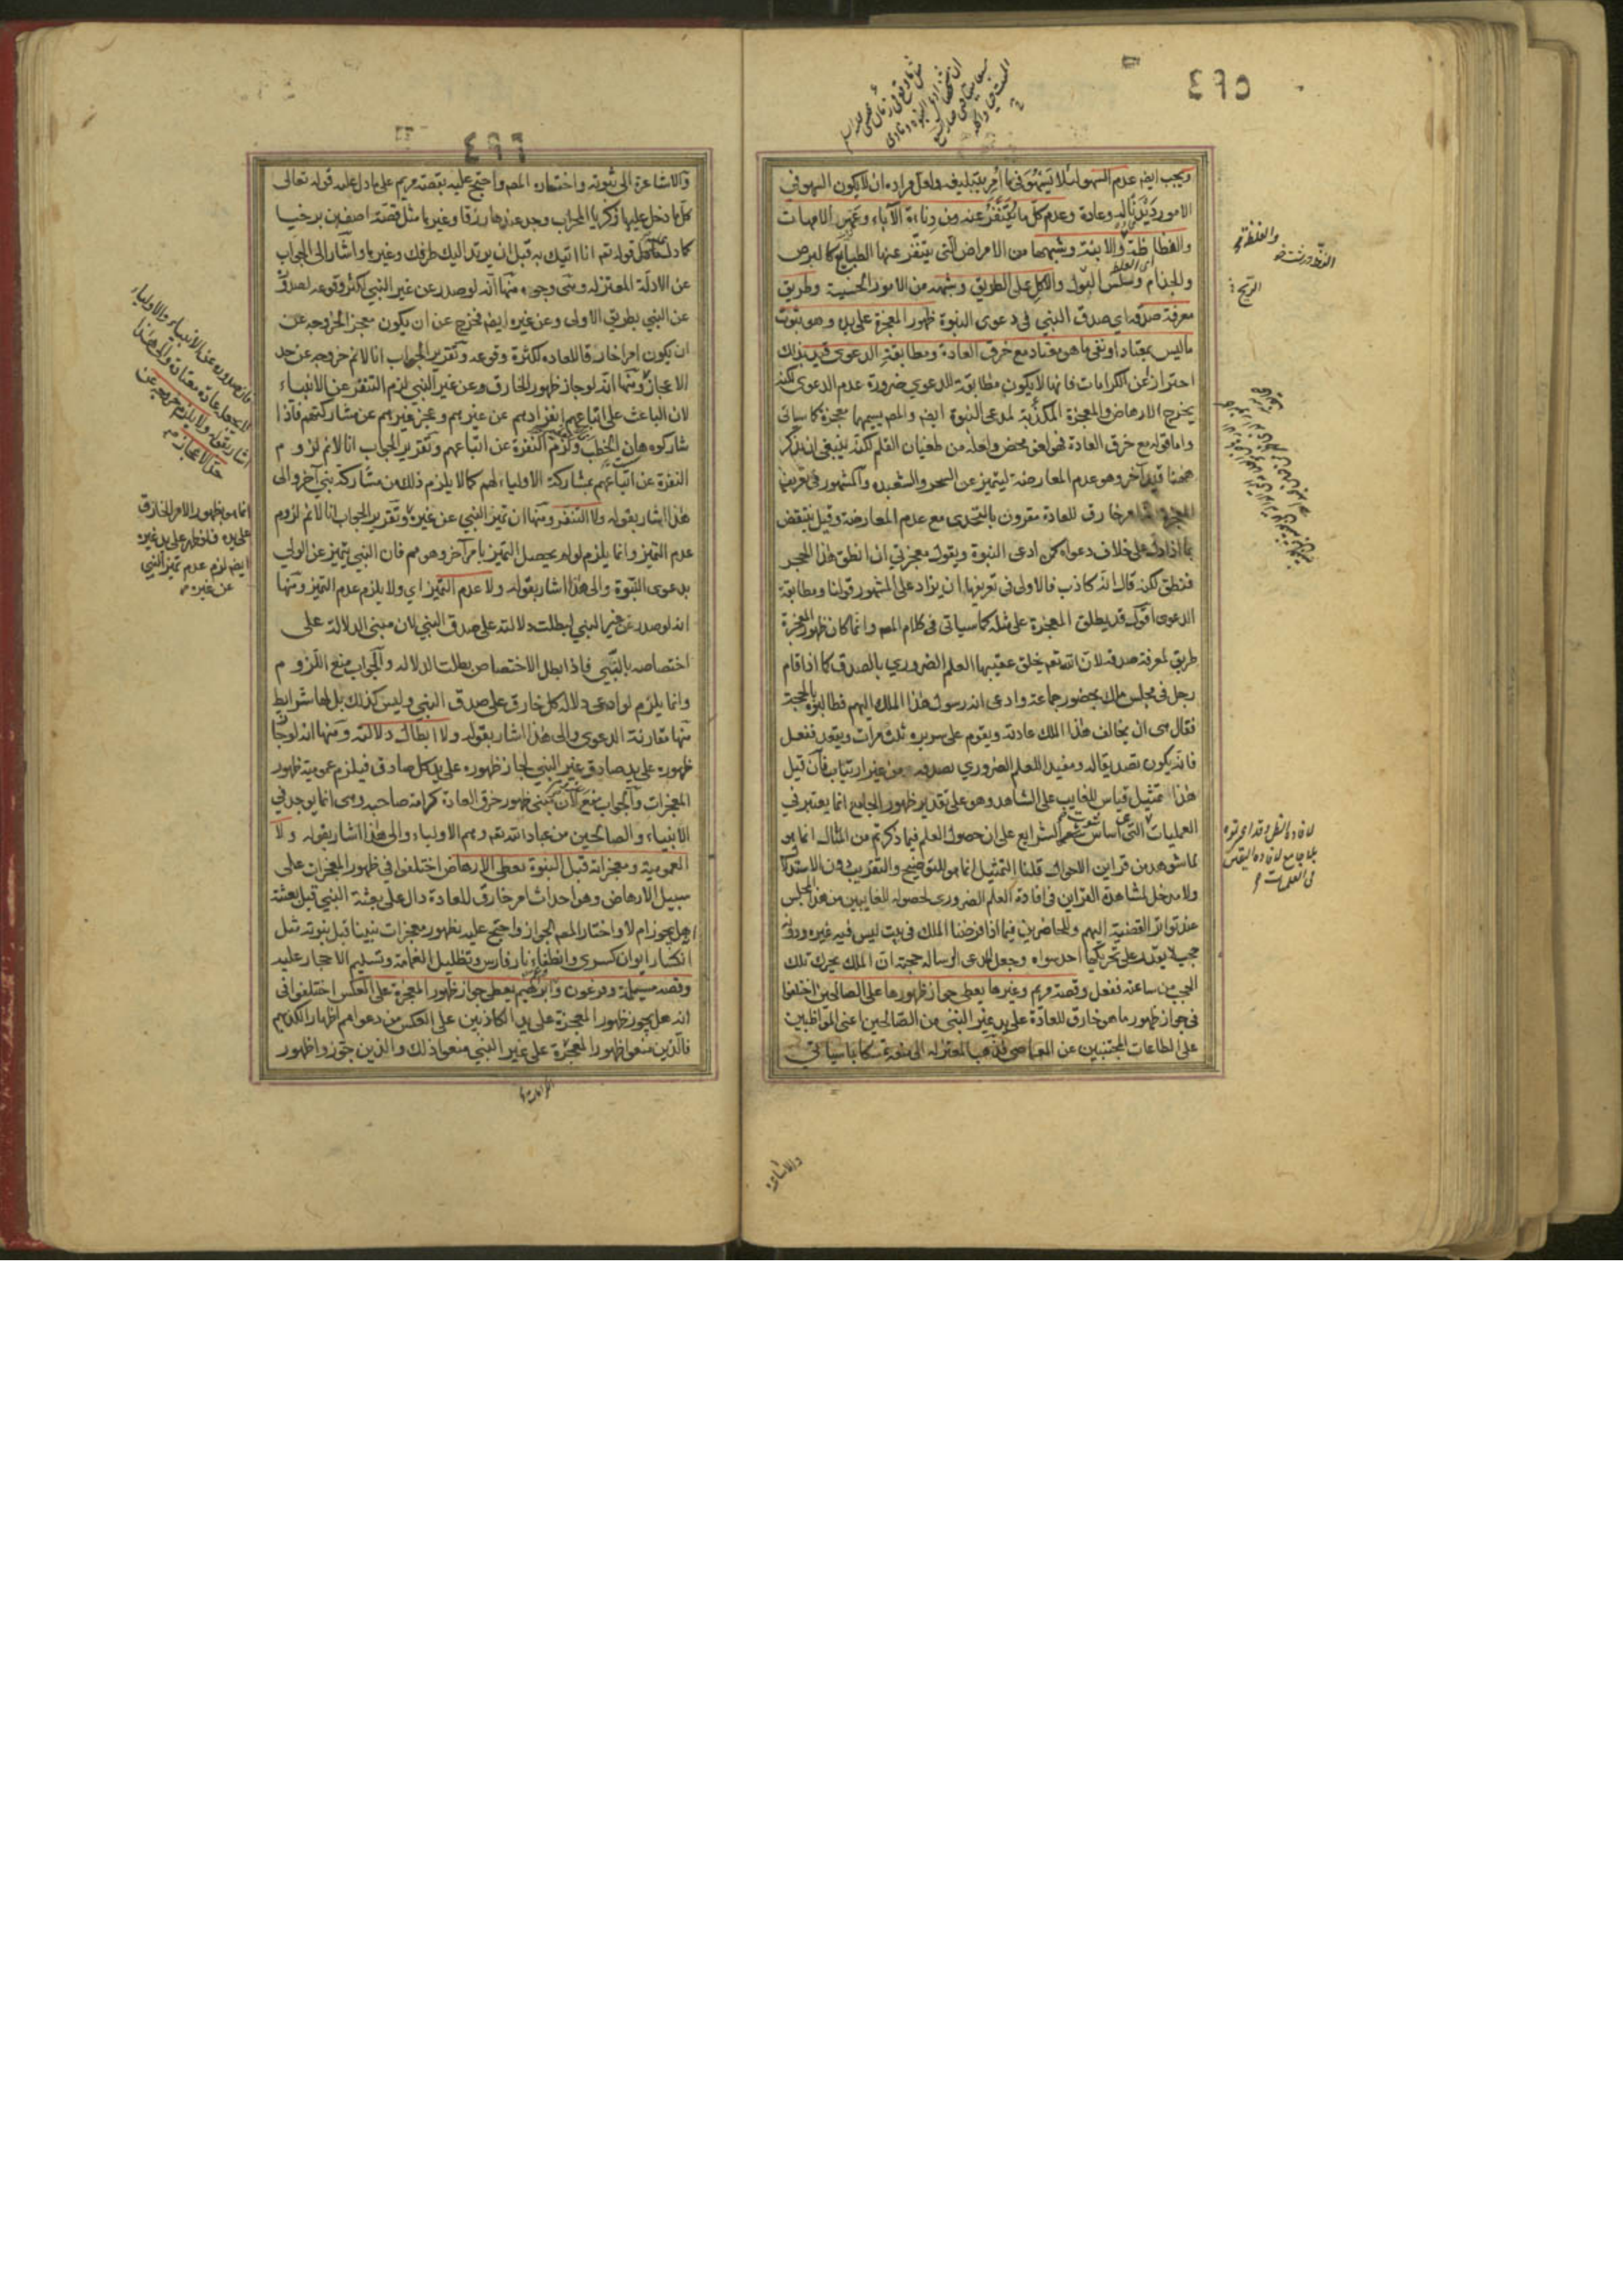 ٤٩٥
ويجب ايضا عدم السهو لئلا يسهو في ما امر بتبليغه ولعل مراده ان لا يكون السهو في
الامور ديدنا له وعادة وعدم كل ما يتنفر عنه من دناءة الآباء وعهر الامهات
والفظاظة والابنة وشبهها من الامراض التي يتنفر عنها الطبايع كالبرص
والجذام وسلس البول والاكل على الطريق وشبهه من الامور الخسيسة وطريق
معرفة صدقه اي صدق النبي في دعوى النبوة ظهور المعجزة على يده وهو ثبوت
ما ليس بمعتاد او نفي ما هو معتاد مع خرق العادة ومطابقة الدعوى قيد بذلك
احترازا عن الكرامات فانها لا يكون مطابقة للدعوى ضرورة عدم الدعوى لكنه
يخرج الارهاض والمعجزة المكذبة لمدعي النبوة ايضا والمص يسميها معجزة كما سياتي
واما قوله مع خرق العادة فهو لغو محض ولعله من طغيان القلم لكنه ينبغي ان يذكر
ههنا قيد آخر وهو عدم المعارضة ليتميز عن السحر والشعبده والمشهور في تعريف
المعجزة امر خارق للعادة مقرون بالتحدى مع عدم المعارضة وقيل ينتقض
بما اذا دل على خلاف دعواه كمن ادعى النبوة ويقول معجزتي ان انطق هذا الحجر
فنطق لكنه قال انه كاذب فالاولى في تعريفها ان يزاد على المشهور قولنا ومطابقة
الدعوى اقول قد يطلق المعجزة على مثله كما سياتي في كلام المص وانما كان ظهور المعجزة
طريق لمعرفة صدقه لان الله تعم يخلق عقيبها العلم الضروري بالصدق كما اذا قام
رجل في مجلس ملك بحضور جماعة وادعى انه رسول هذا الملك اليهم فطالبوه بالحجة
فقال هي ان يخالف هذا الملك عادته ويقوم على سريره ثلث مرات ويقعد ففعل
فانه يكون تصديقا له ومفيدا للعلم الضروري بصدقه من غير ارتياب فان قيل
هذا تمثيل قياس للغايب على الشاهد وهو على تقدير ظهور الجامع انما يعتبر في
العمليات التي اساس ثبوت الشرايع على ان حصول العلم فيما ذكرتم من المثال انما هو
لما شوهد من قراين الاحوال قلنا التمثيل انما هو للتوضيح والتقريب دون الاستدلال
ولا مدخل لمشاهدة القراين في افادة العلم الضروري لحصوله للغايبين من هذا المجلس
عند تواتر القضية اليهم وللحاضرين فيما اذا فرضنا الملك في بيت ليس فيه غيره ودونه
حجب لا يقدر على تحريكها احد سواه وجعل مدعي الرسالة حجته ان الملك يحرك تلك
الحجب من ساعته ففعل وقصة مريم وغيرها يعطي جواز ظهورها على الصالحين اختلفوا
في جواز ظهور ما هو خارق للعادة على يد غير النبي من الصالحين اعني المواظبين
على الطاعات المجتنبين عن المعاصي فذهب المعتزلة الى منعه تمسكا بما سياتي
والاشاعره
٤٩٦
والاشاعرة الى ثبوته واختاره المص واحتج عليه بقصة مريم على ما دل عليه قوله تعالى
كلما دخل عليها زكريا المحراب وجد عندها رزقا وغيرها مثل قصة اصف بن برخيا
كما دل عليه قوله تم انا اتيك به قبل ان يرتد اليك طرفك وغيرها واشار الى الجواب
عن الادلة المعتزله وهى وجوه منها انه لو صدر عن غير النبي لكثر وقوعه لصدوره
عن النبي بطريق الاولى وعن غيره ايضا فخرج عن ان يكون معجزا لخروجه عن
ان يكون امرا خارقا للعاده لكثرة وقوعه وتقرير الجواب انا لا نم خروجه عن حد
الاعجاز ومنها انه لو جاز ظهور الخارق وعن غير النبي لزم التنفر عن الانبياء
لان الباعث على اتباعهم انفرادهم عن غيرهم وعجز غيرهم عن مشاركتهم فاذا
شاركوه هان الخطب ولزم النفرة عن اتباعهم وتقرير الجواب انا لا نم لزوم
النفرة عن اتباعهم بمشاركة الاولياء لهم كما لا يلزم ذلك من مشاركة نبي آخر والى
هذا اشار بقوله ولا التنفر ومنها ان تميز النبي عن غيره وتقرير الجواب انا لا نم لزوم
عدم التميز وانما يلزم لو لم يحصل التميز بامر آخر وهو مم فان النبي يتميز عن الولي
بدعوى النبوة والى هذا اشار بقوله ولا عدم التميز اي ولا يلزم عدم التميز ومنها
انه لو صدر عن غير النبي لبطلت دلالته على صدق النبي لان مبنى الدلالة على
اختصاصه بالنبي فاذا بطل الاختصاص بطلت الدلاله والجواب منع اللزوم
وانما يلزم لو ادعى دلالة كل خارق على صدق النبي وليس كذلك بل لها شرايط
منها مقارنة الدعوى والى هذا اشار بقوله ولا ابطال دلالته ومنها انه لو جاز
ظهوره على يد صادق غير النبي لجاز ظهوره على يد كل صادق فيلزم عمومية ظهور
المعجزات والجواب منع لان مبنى ظهور خرق العادة كرامة صاحبه وهى انما يوجد في
الانبياء والصالحين من عباد الله تعم وهم الاولياء والى هذا اشار بقوله ولا
العمومية ومعجزاته قبل النبوة تعطي الارهاض اختلفوا في ظهور المعجزات على
سبيل الارهاض وهو احداث امر خارق للعادة دال على بعثة النبي قبل بعثته
هل يجوز ام لا واختار المص الجواز واحتج عليه بظهور معجزات نبينا قبل نبوته مثل
انكسار ايوان كسرى وانطفاء نار فارس وتظليل الغمامة وتسليم الاحجار عليه
وقصه مسيلمة وفرعون وابراهيم يعطي جواز ظهور المعجزة على العكس اختلفوا في
انه هل يجوز ظهور المعجزة على يد الكاذبين على العكس من دعواهم اظهارا لكذبهم
فالذين منعوا ظهور المعجزة على غير النبي منعوا ذلك والذين جوزوا ظهور
فان صدوره عن الانبياء والاولياء
انما هو بظهور الامر الخارق
على يده فاذا ظهر على يد غيره
ايضا لزم عدم تميز النبي
عن غيره